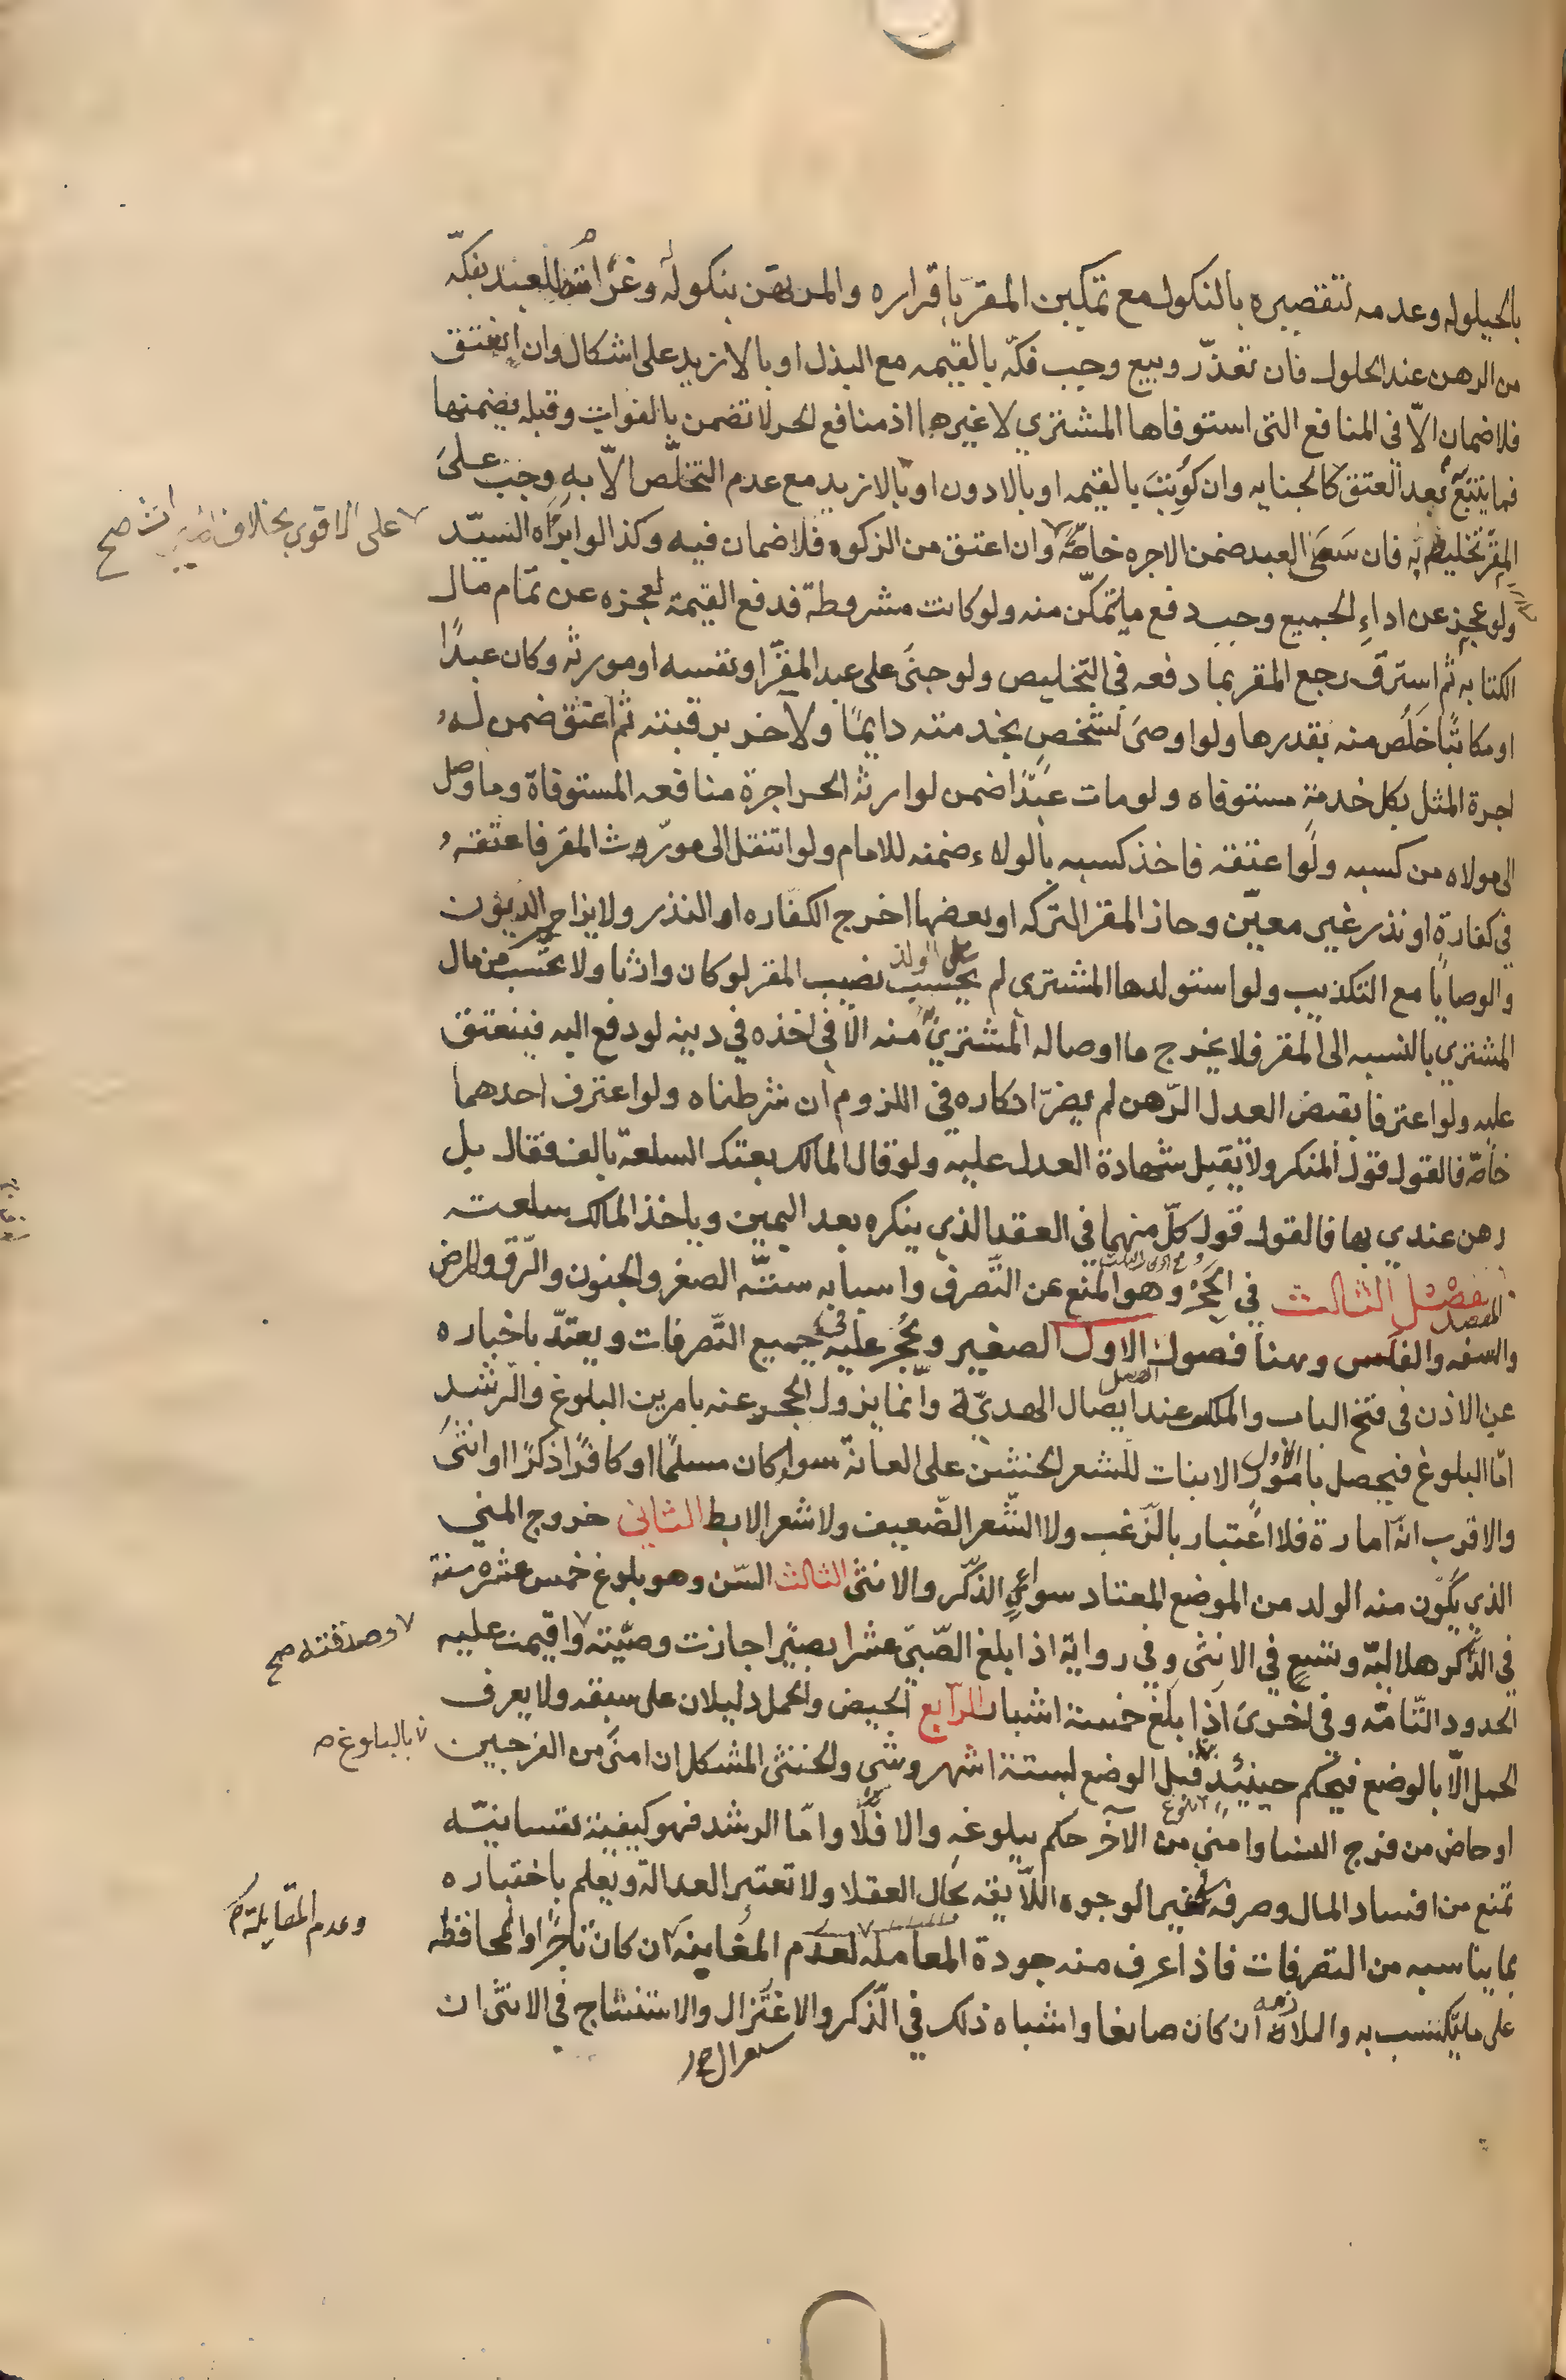 بالحيلوله وعدمه لتقصيره بالنكول مع تمكين المقر باقراره والمرتهن بنكوله وغرامته للعبد بفكّه
من الرهن عند الحلول فان تعذّر وبيع وجب فكّه بالقيمه مع البذل او بالازيد على اشكال وان انعتق
فلاضمان الاّ فى المنافع التى استوفاها المشتري لا غيرها اذ منافع الحر لا تضمن بالفوات وقبله يضمنها
فما يتبع بعد العتق كالجنايه وان كوتب بالقيمه او بالادون او بالازيد مع عدم التخلّص الاّ به وجب على
المقرّ تخليصه فان سَعَى العبد ضمن الاجره خاصّة وان اعتق من الزكوه فلا ضمان فيه وكذا لو ابرَاه السيّد
على الاقوي بخلاف صح
ولو عجز عن اداءِ الجميع وجب دفع ما يتمكّن منه ولو كانت مشروطة فدفع القيمة لعجزه عن تمام مال
الكتابه ثم استرق رجع المقر بما دفعه فى التخليص ولو جنىَ على عبد المقرّ او نفسه او مورثه وكان عبدًا
او مكاتبًا خَلُص منه بقدرها ولو اوصىَ لشخصٍ بخدمته دايمًا ولآخر برقبته ثم اعتق ضمن له
اجرة المثل بكل خدمةٍ مستوفاه ولو مات عبدًا ضمن لوارثه الحر اجرة منافعه المستوفاة وما وصل
الى مولاه من كسبه ولو اعتقه فاخذ كسبه بالولاء ضمنه للامام ولو انتقل الى مورّوث المقر فاعتقه
في كفارةٍ او نذر غير معيّن وحاز المقر التركه او بعضها اخرج الكفّاره او النذر ولا يزاحم الديون
والوصايا مع التكذيب ولو استولدها المشتري لم يحسب على الولد نصيب المقر لو كان وارثا ولا يحتسب من مال
المشتري بالنسبه الى المقر فلا يخرج ما اوصا له المشتريُّ منه الا فى اخذه في دينه لو دفع اليه فينعتق
عليه ولو اعترفا بقبض العدل الرّهن لم يضرّ انكاره فى اللزوم ان شرطناه ولو اعترف احدهما
خاصّه فالقول قول المنكر ولا تقبل شهادة العدل عليه ولو قال المالك بعتك السلعة بالف فقال بل
رهن عندي بها فالقول قول كلّ منهما في العقد الذي ينكره بعد اليمين وياخذ المالك سلعته
المقصد الثالث في الحَجْر وهو المنع عن التّصرف واسبابه ستّه الصغر والجنون والرّق والمرض
والسفه والفلس وهنا فصول الاول الصغير ويُحجر عليه في جميع التّصرفات ويعتدّ باخباره
عن الاذن فى فتح الباب والملك عند ايصال الهديّة وانّما يزول الحجر عنه بامرين البلوغ والرشد
امّا البلوغ فيحصل بامور الاول الانبات للشعر الخشن على العانة سواء كان مسلمًا او كافرًا ذكرًا او انثىَ
والاقرب انّه امارة فلا اعتبار بالزّغب ولا الشّعر الضّعيف ولا شعر الابط الثاني خروج المني
الذي يكون منه الولد من الموضع المعتاد سواء الذّكر والانثى الثالث السّن وهو بلوغ خمس عشره سنة
في الذّكر هلاليّه وتسع في الانثى وفي رواية اذا بلغ الصّبىّ عشرا بصيرًا جازت وصيّته واقيمت عليه
وصدقته صح
الحدود التّامّه وفى اخرىَ اذا بلغ خمسة اشبار الرّابع الحيض والحمل دليلان على سبقه ولا يعرف
الحمل الاّ بالوضع فيحكم حينئذٍ قبل الوضع لستة اشهر وشي والخنثى المشكل ان امنىَ من الفرجين
بالبلوغ
او حاض من فرج النسا وامني من الآخر حكم ببلوغه والا فلا وامّا الرشد فهو كيفيّة نفسانيّه
تمنع من افساد المال وصرفه في غير الوجوه اللّايقه بحال العقلا ولا تعتبر العدالة ويعلم باختباره
بما يناسبه من التصرفات فاذا عرف منه جودة المعامله لعدم المغابنة ان كان تاجرًا او المحافظه
وعدم المقايلة
على ما يكتسب به والملازمه ان كان صانعا واشباه ذلك في الّذكر والاغتزال والاستنتاج فى الانثى ان